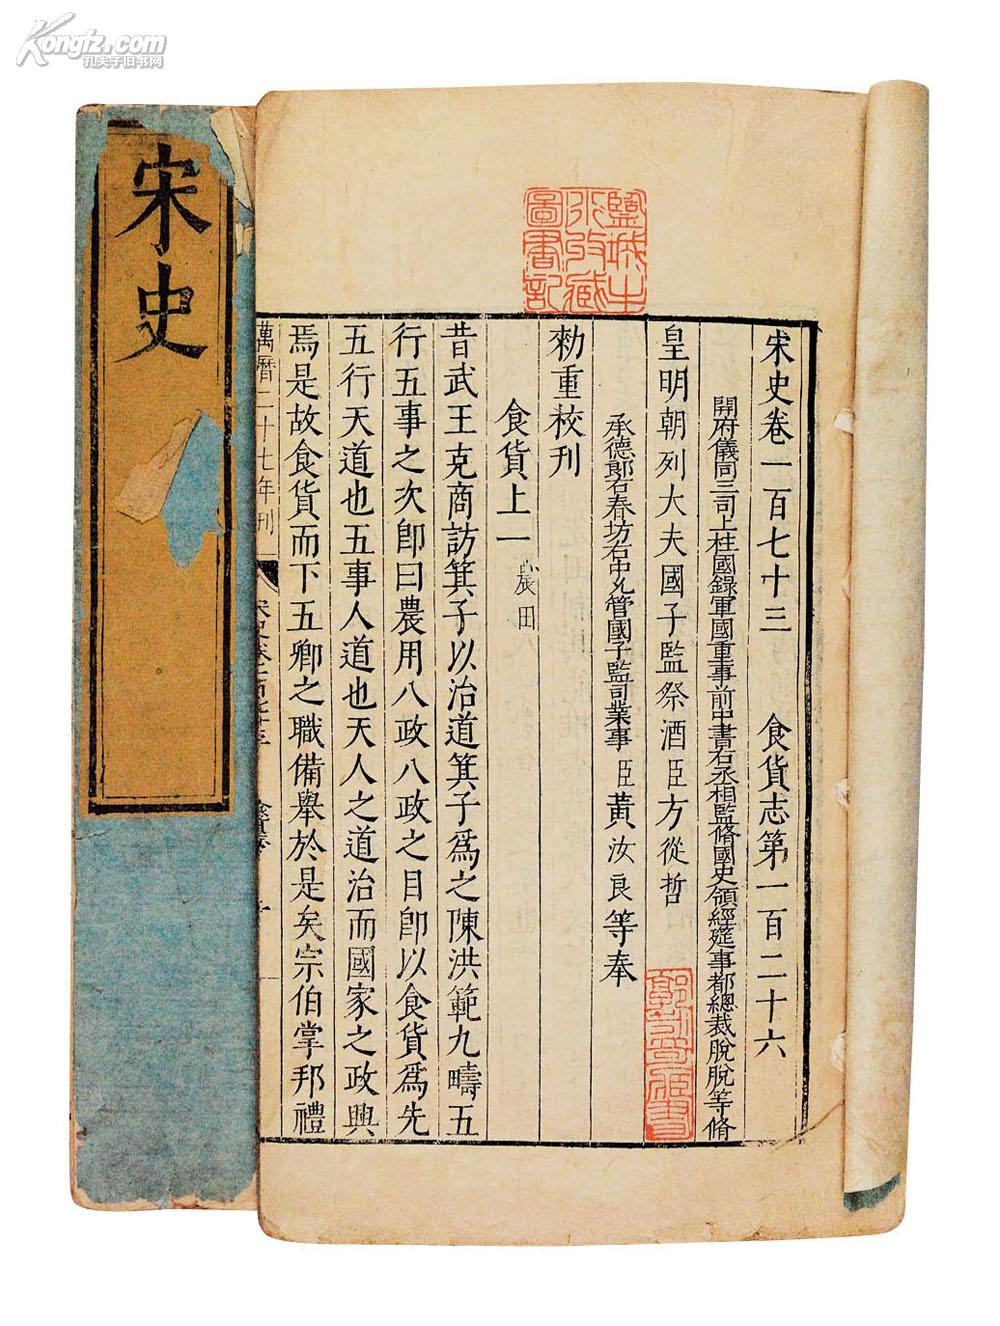 Kongfz.com
孔夫子旧书网
宋史
鹽城土
水收藏
圖書記
宋史卷一百七十三 食貨志第一百二十六
開府儀同三司上柱國錄軍國重事前中書右丞相監脩國史領經筵事都總裁脫脫等脩
皇明朝列大夫國子監祭酒臣方從哲
承德郎右春坊右中允管國子監司業事臣黃汝良等奉
勑重校刋
食貨上一 農田
昔武王克商訪箕子以治道箕子爲之陳洪範九疇五
行五事之次卽曰農用八政八政之目卽以食貨爲先
五行天道也五事人道也天人之道治而國家之政興
焉是故食貨而下五卿之職備舉於是矣宗伯掌邦禮
萬曆二十七年刊
宋史卷一百七十三